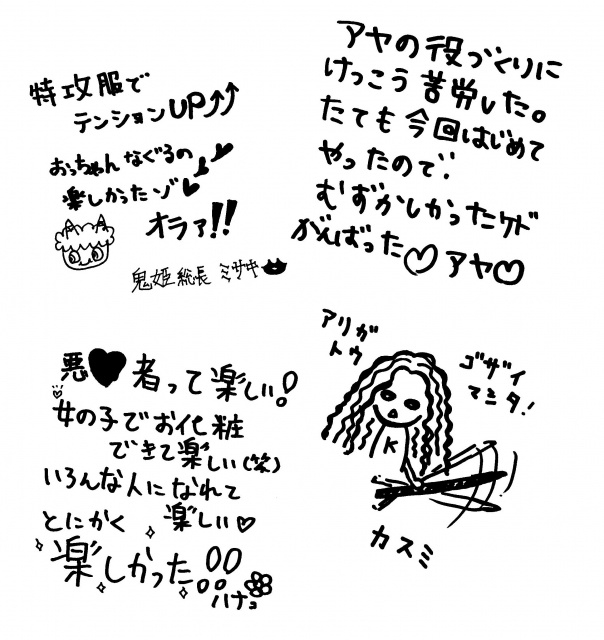 特攻服で
テンションUP⤴⤴
おっちゃんなぐるの
楽しかったゾ♥
オラァ!!
鬼姫総長 ミサキ
アヤの役づくりに
けっこう苦労した。
たても今回はじめて
やったので
むずかしかったケド
がんばった♡アヤ♡
悪♥者って楽しい!
女の子でお化粧
できて楽しい(笑)
いろんな人になれて
とにかく 楽しい♡
楽しかった!!
ハナコ
アリガ
トウ
ゴザイ
マシタ!
K
カスミ